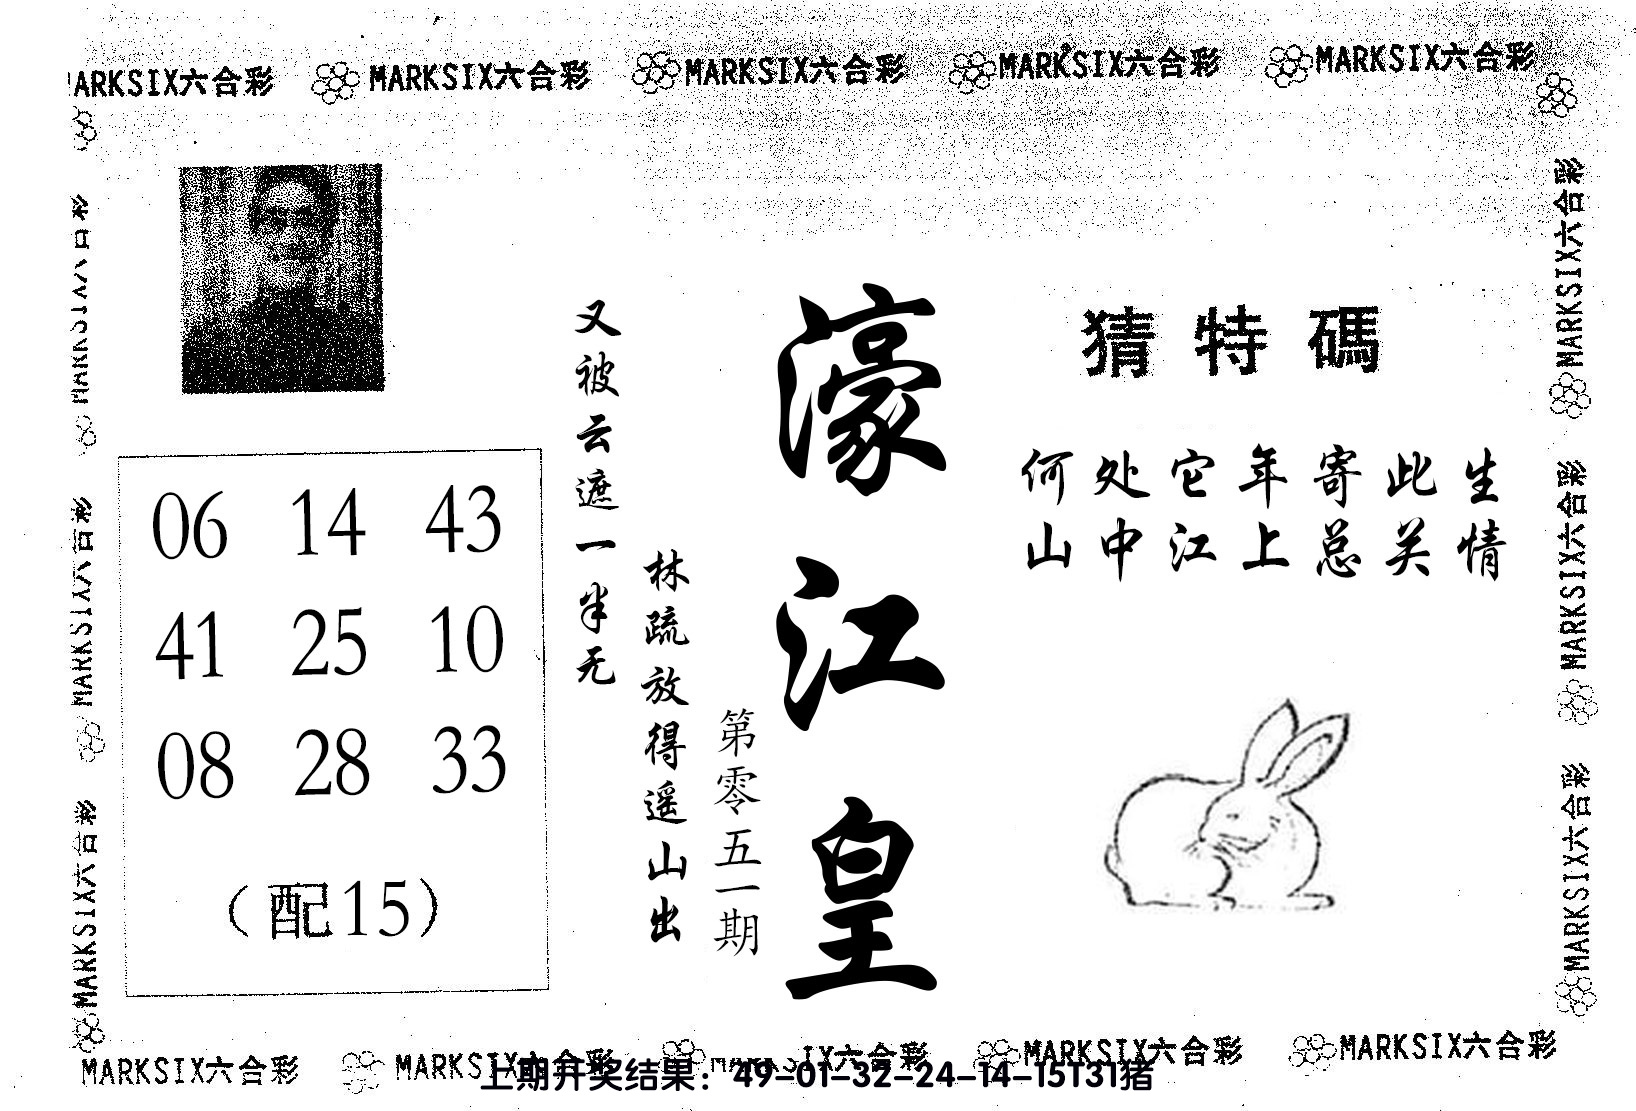 MARKSIX六合彩 MARKSIX六合彩 MARKSIX六合彩 MARKSIX六合彩 MARKSIX六合彩
猜特碼
何处它年寄此生
山中江上总关情
濠江皇
第零五一期
林疏放得遥山出
又被云遮一半无
06 14 43
41 25 10
08 28 33
(配15)
MARKSIX六合彩
MARKSIX六合彩
MARKSIX六合彩
MARKSIX六合彩
MARKSIX六合彩
MARKSIX六合彩
MARKSIX六合彩 MARKSIX六合彩 IX六合彩 MARKSIX六合彩 MARKSIX六合彩
上期开奖结果：49-01-32-24-14-15T31猪